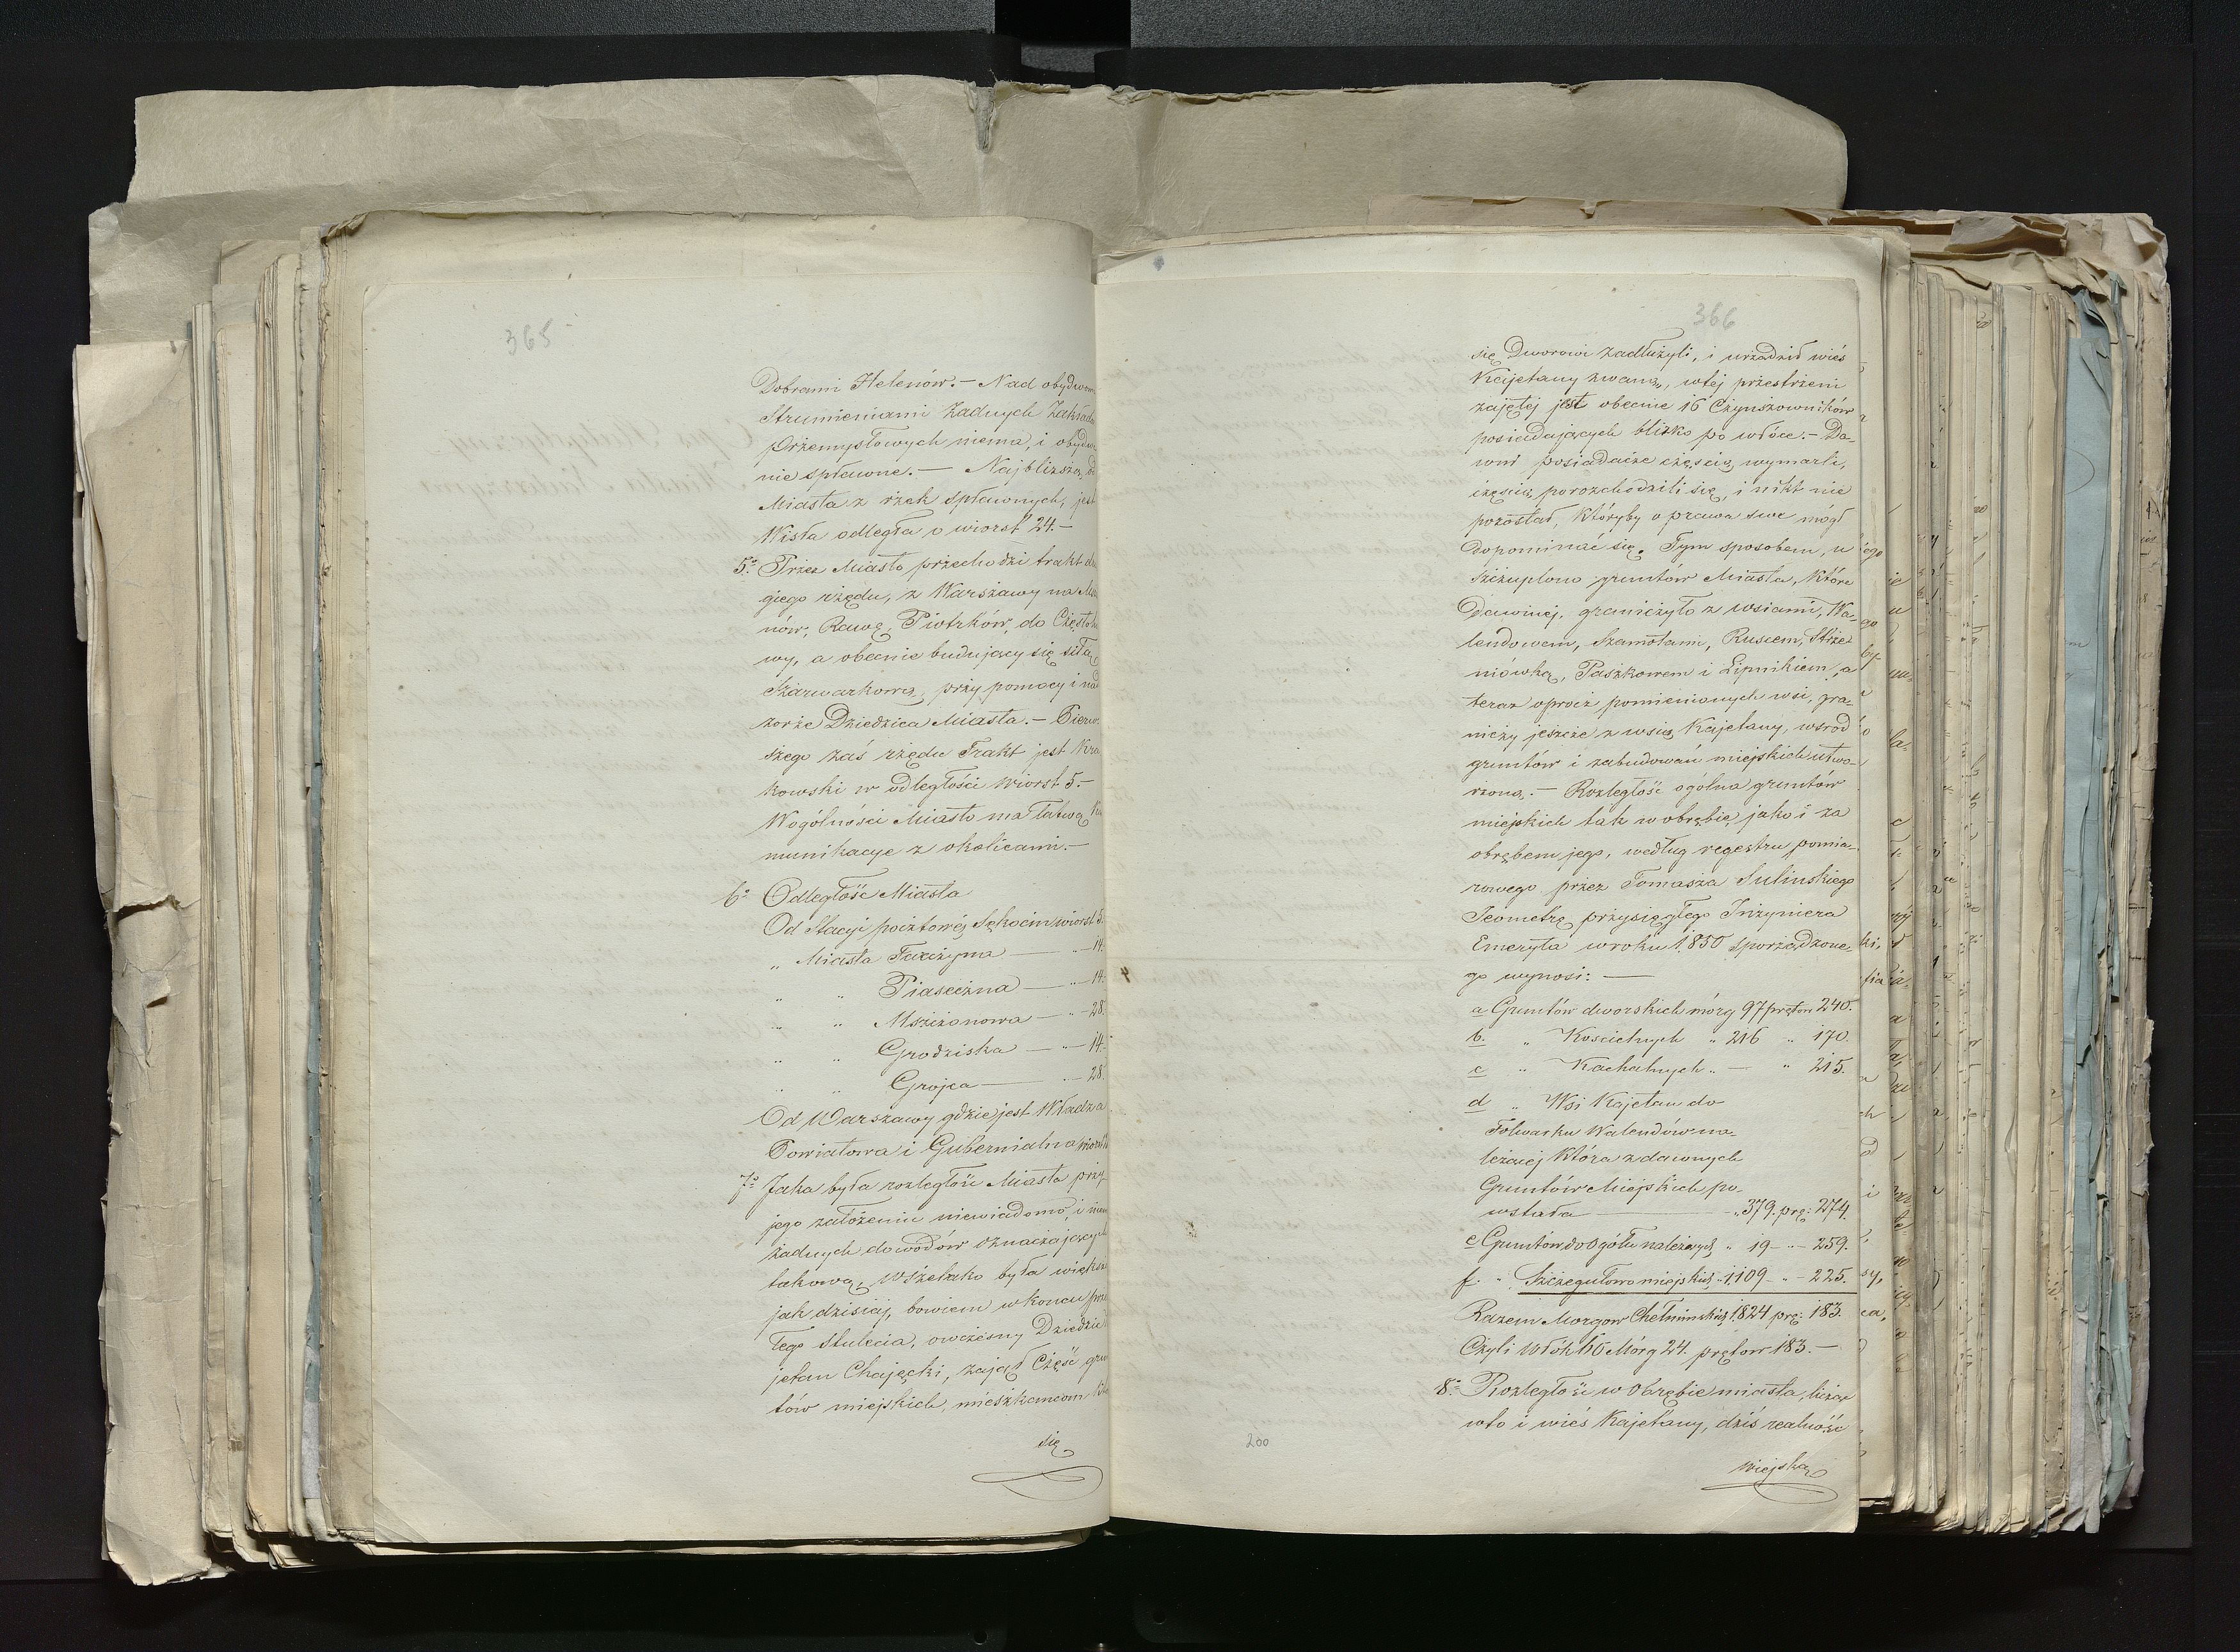 365
Dobrami Helenów. — Nad obydwom
Strumieniami żadnych Zakład
Przemysłowych niema, i obydwa
nie spławne. — Najbliższą, od
Miasta z rzek spławnych, jest
Wisła odległa o wiorst 24. —
5º Przez Miasto przechodzi trakt dru
giego rzędu, z Warszawy na Msz
nów, Rawę, Piotrków, do Częstoho
wy, a obecnie budujący się siłą
Szarwarkową, przy pomocy i nad
zorze Dziedzica Miasta. — Pierw
szego zaś rzędu Trakt jest Kra
kowski w odległości wiorst 5. —
Wogólności Miasto ma łatwą Ko
munikacye z okolicami. —
6º Odległość Miasta
Od Stacyi pocztowéj Sękocin wiorst 5.
„ Miasta Tarczyna — „ — 14.
„ „ Piaseczna — „ — 14.
„ „ Mszczonowa — „ — 28.
„ „ Grodziska — „ — 14.
„ „ Grojca — „ — 28.
Od Warszawy gdzie jest Władza
Powiatowa i Gubernialna wiorst
7º Jaka była rozległość Miasta przy
jego założeniu niewiadomo, i niem
żadnych dowodów oznaczających
takową, wszelako była większ
jak dzisiaj, bowiem w koncu prze
łego stulecia, owczesny Dziedzic
jetan Chajęcki, zajął Część grun
tów miejskich, mieszkancom
się
366
się Dworowi zadłużyli, i urządził wieś
Kajetany zwaną, w téj przestrzeni
zajętej jest obecnie 16 Czynszowników
posiadających blizko po włóce. — Da-
wni posiadacze częscią wymarli,
częscią porozchodzili się, i nikt nie
pozostał, któryby o prawa swe mógł
dopominać się. Tym sposobem, u
szczuplono gruntów Miasta, które
Dawniej, graniczyło z wsiami, Wa-
lendowem, Szamotami, Ruscem, Strze
niówką, Paszkowem i Lipnikiem, a
teraz oprócz pomienionych wsi, gra-
niczy jeszcze z wsią Kajetany, wśród
gruntów i zabudowań miejskich utwo-
rzoną. — Rozległość ogólna gruntów
miejskich tak w obrębie, jako i za
obrębem jego, według regestru pomia-
rowego przez Tomasza Sulinskiego
Jeometrę przysięgłego Inżyniera
Emeryta w roku 1850 sporządzone-
go wynosi: —
a Gruntów dworskich mórg 97 prętow 240.
b. „ Koscielnych „ 216 „ 170.
c „ Kachalnych „ — „ 215.
d „ Wsi Kajetan do
Folwarku Walendów na-
leżącéj która z dawnych
Gruntów Miejskich po-
wstała — „ 379. prę: 274.
e Gruntów do Ogółu należących „ 19 — „ — 259.
f. „ Szczegułowo miejskich „ 1109 — „ — 225.
Razem Morgow Chełminskich 1824 prę: 183.
Czyli Włók 60 Mórg 24. prętow 183. —
8º Rozległość w Obrębie miasta, licząc
w to i wieś Kajetany, dziś realność
wiejską
200